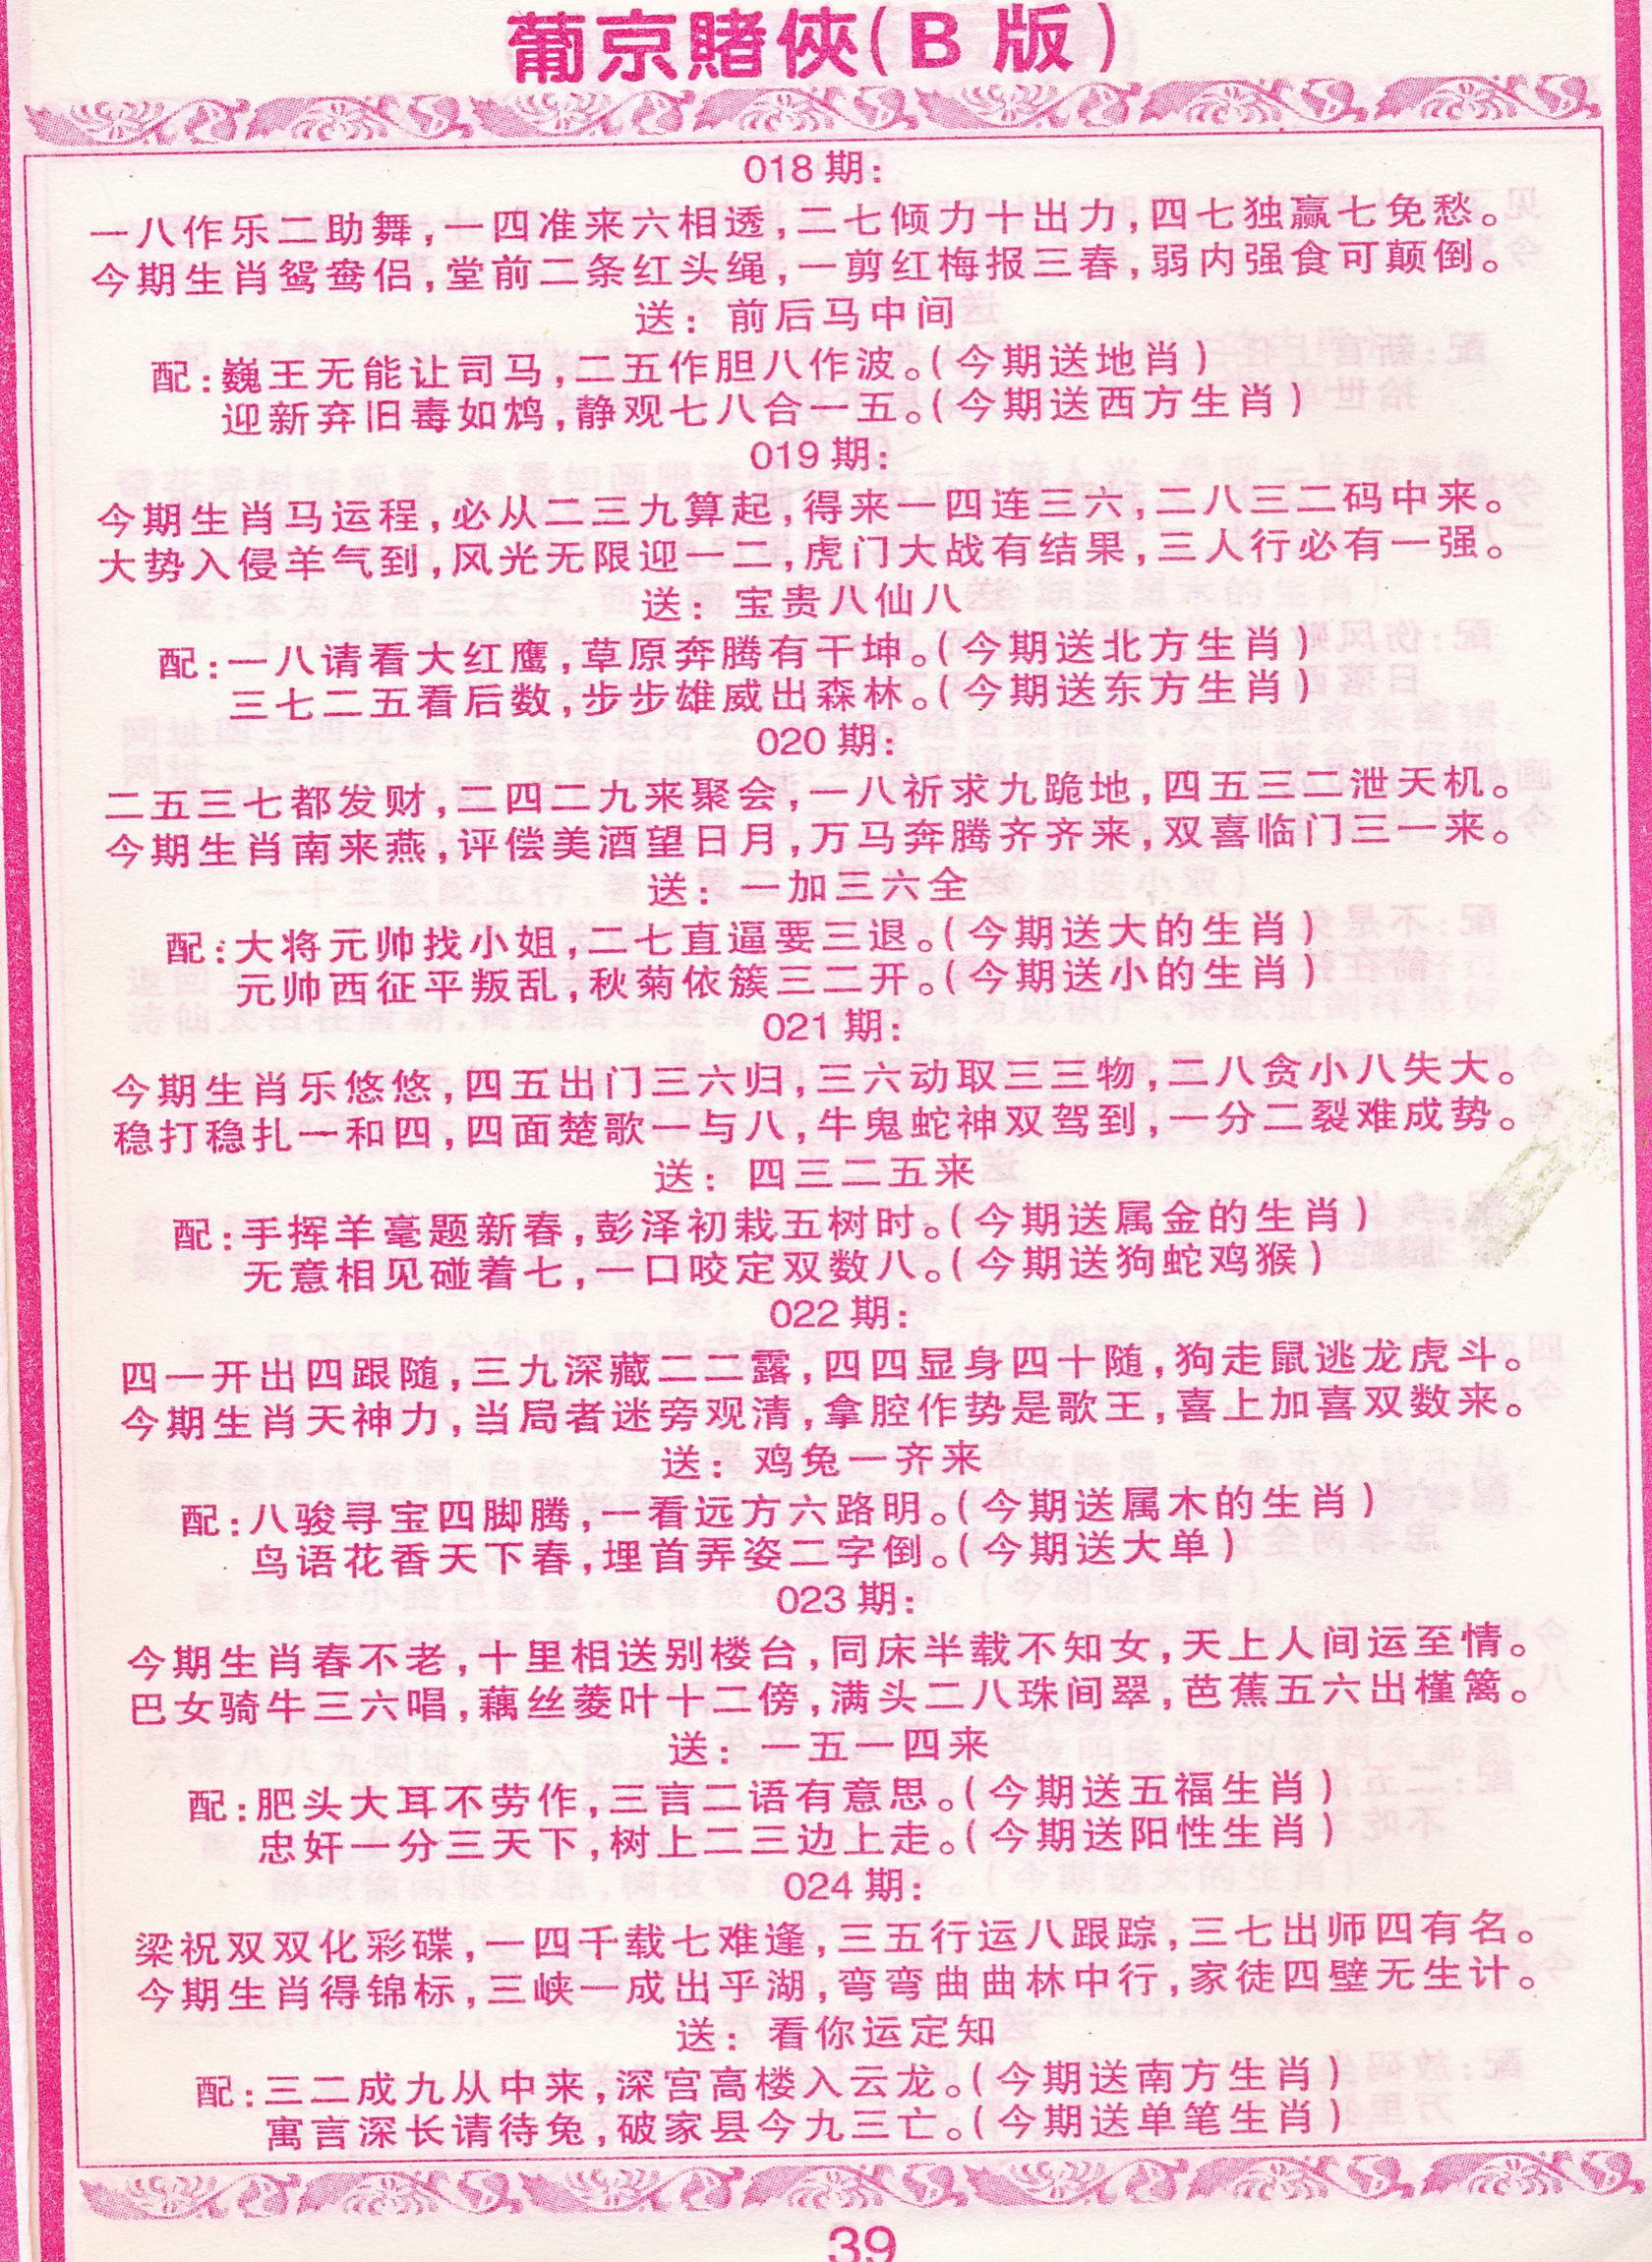 葡京賭俠(B 版)
018 期:
一八作乐二助舞,一四准来六相透,二七倾力十出力,四七独赢七免愁。
今期生肖鸳鸯侣,堂前二条红头绳,一剪红梅报三春,弱内强食可颠倒。
送: 前后马中间
配:巍王无能让司马,二五作胆八作波。(今期送地肖)
迎新弃旧毒如鸩,静观七八合一五。(今期送西方生肖)
019 期:
今期生肖马运程,必从二三九算起,得来一四连三六,二八三二码中来。
大势入侵羊气到,风光无限迎一二,虎门大战有结果,三人行必有一强。
送: 宝贵八仙八
配:一八请看大红鹰,草原奔腾有干坤。(今期送北方生肖)
三七二五看后数,步步雄威出森林。(今期送东方生肖)
020 期:
二五三七都发财,二四二九来聚会,一八祈求九跪地,四五三二泄天机。
今期生肖南来燕,评偿美酒望日月,万马奔腾齐齐来,双喜临门三一来。
送: 一加三六全
配:大将元帅找小姐,二七直逼要三退。(今期送大的生肖)
元帅西征平叛乱,秋菊依簇三二开。(今期送小的生肖)
021 期:
今期生肖乐悠悠,四五出门三六归,三六动取三三物,二八贪小八失大。
稳打稳扎一和四,四面楚歌一与八,牛鬼蛇神双驾到,一分二裂难成势。
送: 四三二五来
配:手挥羊毫题新春,彭泽初栽五树时。(今期送属金的生肖)
无意相见碰着七,一口咬定双数八。(今期送狗蛇鸡猴)
022 期:
四一开出四跟随,三九深藏二二露,四四显身四十随,狗走鼠逃龙虎斗。
今期生肖天神力,当局者迷旁观清,拿腔作势是歌王,喜上加喜双数来。
送: 鸡兔一齐来
配:八骏寻宝四脚腾,一看远方六路明。(今期送属木的生肖)
鸟语花香天下春,埋首弄姿二字倒。(今期送大单)
023 期:
今期生肖春不老,十里相送别楼台,同床半载不知女,天上人间运至情。
巴女骑牛三六唱,藕丝菱叶十二傍,满头二八珠间翠,芭蕉五六出槿篱。
送: 一五一四来
配:肥头大耳不劳作,三言二语有意思。(今期送五福生肖)
忠奸一分三天下,树上二三边上走。(今期送阳性生肖)
024 期:
梁祝双双化彩碟,一四千载七难逢,三五行运八跟踪,三七出师四有名。
今期生肖得锦标,三峡一成出乎湖,弯弯曲曲林中行,家徒四壁无生计。
送: 看你运定知
配:三二成九从中来,深宫高楼入云龙。(今期送南方生肖)
寓言深长请待兔,破家县今九三亡。(今期送单笔生肖)
39